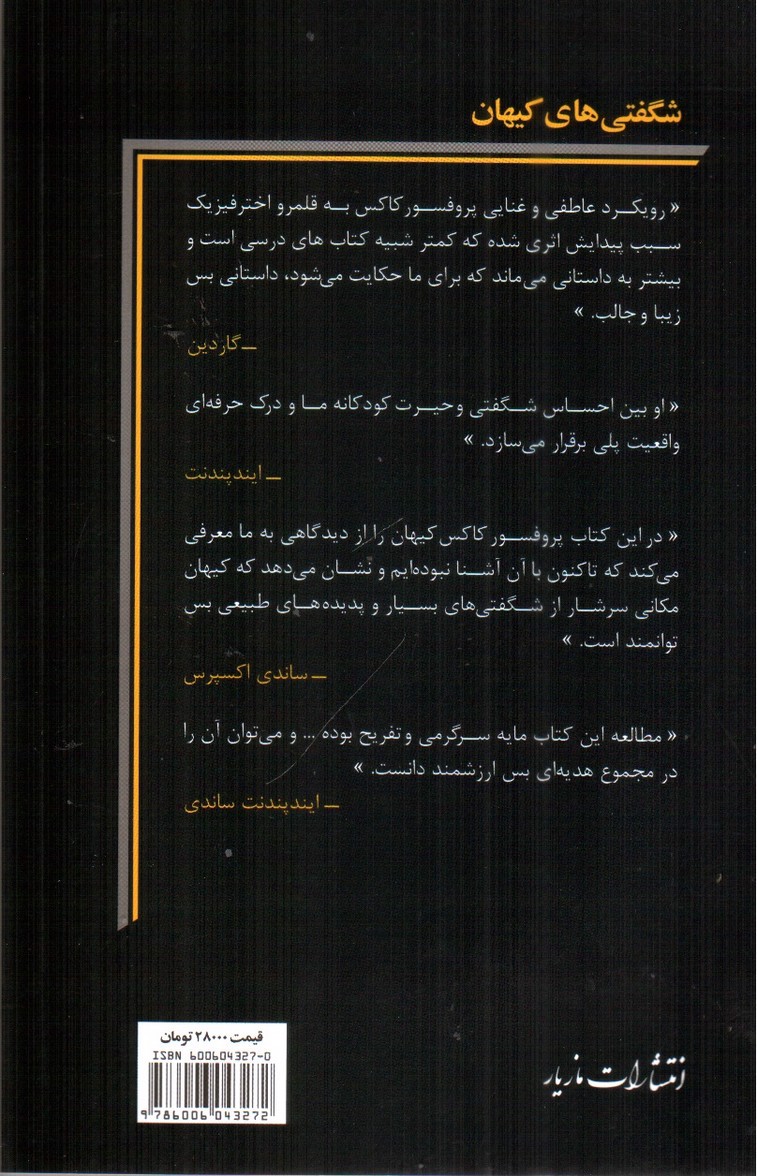 شگفتی های کیهان
« رویکرد عاطفی و غنایی پروفسور کاکس به قلمرو اخترفیزیک
سبب پیدایش اثری شده که کمتر شبیه کتاب های درسی است و
بیشتر به داستانی می‌ماند که برای ما حکایت می‌شود، داستانی بس
زیبا و جالب. »
ـ گاردین
« او بین احساس شگفتی و حیرت کودکانه ما و درک حرفه‌ای
واقعیت پلی برقرار می‌سازد. »
ـ ایندپندنت
« در این کتاب پروفسور کاکس کیهان را از دیدگاهی به ما معرفی
می‌کند که تاکنون با آن آشنا نبوده‌ایم و نشان می‌دهد که کیهان
مکانی سرشار از شگفتی‌های بسیار و پدیده‌های طبیعی بس
توانمند است. »
ـ ساندی اکسپرس
« مطالعه این کتاب مایه سرگرمی و تفریح بوده ... و می‌توان آن را
در مجموع هدیه‌ای بس ارزشمند دانست. »
ـ ایندپندنت ساندی
انتشارات مازیار
قیمت ۲۸۰۰۰ تومان
ISBN 600604327-0
9 786006 043272